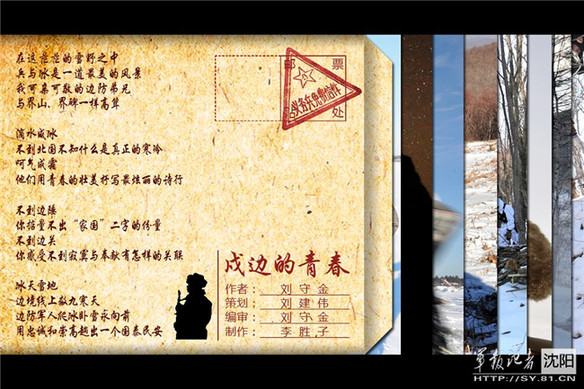 在这茫茫的雪野之中
兵与冰是一道最美的风景
我可亲可敬的边防弟兄
与界山、界碑一样高耸
滴水成冰
不到北国不知什么是真正的寒冷
呵气成霜
他们用青春的壮美抒写最炫丽的诗行
不到边陲
你掂量不出“家国”二字的份量
不到边关
你感受不到寂寞与奉献有怎样的关联
冰天雪地
边境线上数九寒天
边防军人爬冰卧雪永向前
用忠诚和崇高趟出一个国泰民安
邮 票
义务兵免费信件
处
戍边的青春
作者：刘守金
策划：刘建伟
编审：刘守金
制作：李胜子
军报记者 沈阳
HTTP://SY.81.CN